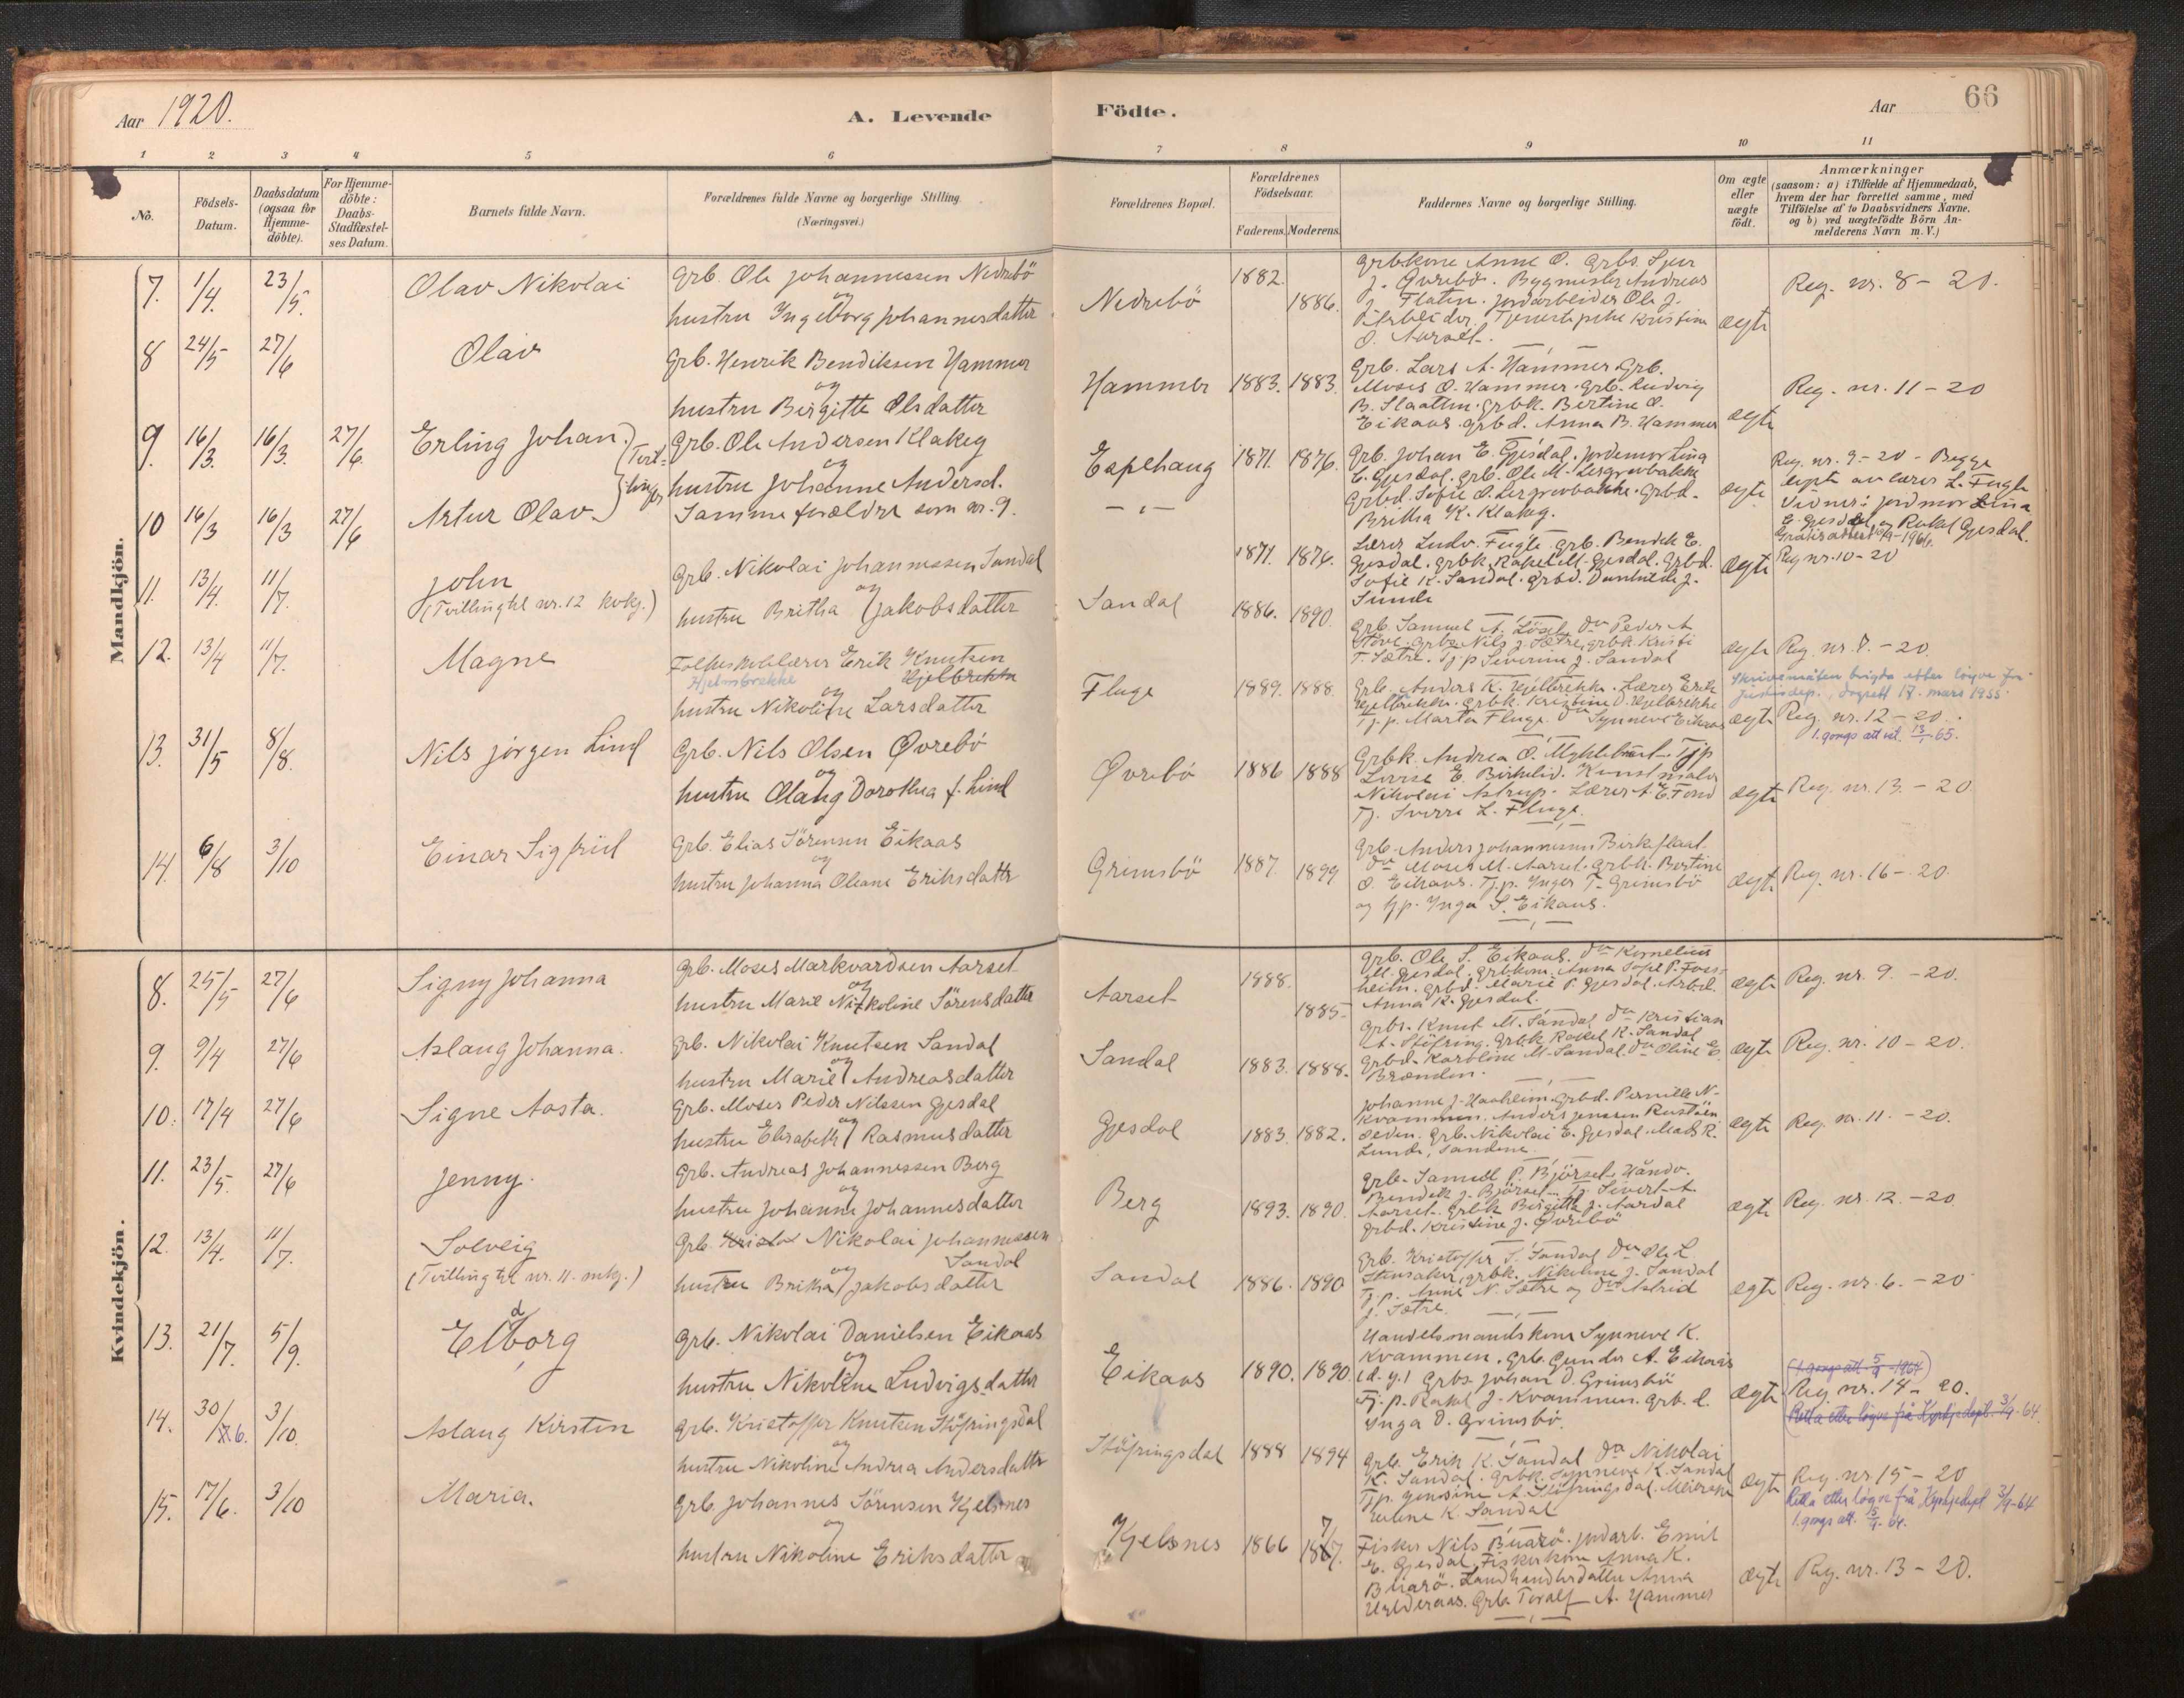 Aar 1920.
A. Levende
Födte.
Aar
66
1 2 3 4 5 6 7 8 9 10 11
No.
Födsels-Datum.
Daabsdatum (ogsaa for Hjemme-döbte).
For Hjemme-döbte: Daabs-Stadfæstel-ses Datum.
Barnets fulde Navn.
Forældrenes fulde Navne og borgerlige Stilling.
(Næringsvei.)
Forældrenes Bopæl.
Forældrenes Födselsaar.
Faderens. Moderens.
Faddernes Navne og borgerlige Stilling.
Om ægte eller uægte födt.
Anmærkninger
(saasom: a) i Tilfælde af Hjemmedaab,
hvem der har forrettet samme, med
Tilföielse af to Daabsvidners Navne.
og b) ved uægtefödte Börn An-
melderens Navn m.V.)
Mandkjön.
7. 1/4. 23/5. Olav Nikolai
Grb. Ole Johannessen Nedrebö
og
hustru Ingeborg Johannesdatter
Nedrebö 1882. 1886.
Grbkone Anne O. Grbs.
J. Övrebö. Bygmester Andreas
J. Flaten. Jordarbeider Ole J.
Kristine
ægte
Reg. nr. 8 - 20.
8 24/5 27/6 Olav
Grb. Henrik Bendiksen Hammer
og
hustru Birgitte Olsdatter
Hammer 1883. 1883.
Grb. Lars A. Hammer. Grb.
Moses O. Hammer. Grb. Ludvig
B. Slaatten. Grbk. Bertine O.
Eikaas. Grbd. Anna B. Hammer
ægte
Reg. nr. 11 - 20
9. 16/3. 16/3. 27/6. Erling Johan. (Tvil-
Grb. Ole Andersen Klakeg
og
hustru Johanne Andersd.
Espehaug 1871. 1876.
Grb. Johan E. Gjesdal. Jordemor Lina
E. Gjesdal. Grb. Ole M.
Grbd. Sofie O. Grbd.
Britha K. Klakeg.
ægte
Reg. nr. 9 - 20 - Begge
döpt av lærer L. Fugle
Vidner: Jordmor Lina
E. Gjesdal og Rakel Gjesdal.
10 16/3 16/3 27/6 Artur Olav. linger
Samme forældre som nr. 9.
— " —
1871. 1876.
Lærer Ludv. Fugle. Grb. Bendik E.
Gjesdal. Grbk. Rakel M. Gjesdal. Grbd.
Sofie K. Sandal. Grbd. J.
Sunde
ægte
Reg nr. 10 - 20
11. 13/4. 11/7. John
(Tvilling til nr. 12 kvkj.)
Grb. Nikolai Johannessen Sandal
og
hustru Britha Jakobsdatter
Sandal 1886. 1890.
Grb. Samuel A. Löset. do Peder A
Grbs. Nils J. Sætre, grbk. Kristi
T. Sætre. Tj.p. Severine J. Sandal
ægte
Reg. nr. 7. - 20.
12. 13/4 11/7. Magne
Folkeskolelærer Erik Knutsen
Hjelmbrekke Hjelbrekke
og
hustru Nikoline Larsdatter
Fluge 1889. 1888
Grb. Anders K. Hjelbrekke. Lærer Erik
Hjelbrekke. Grbk. Kristine O. Hjelbrekke
Tj.p. Marta Fluge. do Synneve Eikaas
ægte
Skrivemåten brigda etter löyve frå
Justisdep., dagsett 17. mars 1955.
Reg. nr. 12 - 20.
1. gongs att. ut. 13/1 - 65.
13. 31/5 8/8. Nils Jörgen Lind
Grb. Nils Olsen Övrebö
og
hustru Olaug Dorothea f. Lind
Övrebö 1886 1888
Grbk. Andrea O. Myklebust. Tjp
Lovise E. Birkelid. Kunstmaler
Nikolai Astrup. Lærer A. E. Fond
Tj. Sverre L. Fluge.
ægte
Reg. nr. 13. - 20.
14. 6/8 3/10 Einar Sigfrid
Grb. Elias Sörensen Eikaas
og
hustru Johanna Oleane Eriksdatter
Grimsbö 1887. 1899
Grb. Anders Johannessen Birkeflaat.
do Moses M. Aarset. Grbk. Bertine
O. Eikaas. Tj.p. Inger T. Grimsbö
og tjp. Inga S. Eikaas.
ægte
Reg. nr. 16 - 20.
Kvindekjön.
8. 25/5 27/6 Signy Johanna
Grb. Moses Markvardsen Aarset
og
hustru Marie Nikoline Sörensdatter
Aarset 1888. 1885
Grb. Ole S. Eikaas. do Kornelius
M. Gjesdal. Grbkone Anna P. Fors-
heim. Grbd. Marie P. Gjesdal. Arbd.
Anna K. Gjesdal.
ægte
Reg. nr. 9. - 20.
9. 9/4 27/6 Aslaug Johanna.
Grb. Nikolai Knutsen Sandal
og
hustru Marie Andreasdatter
Sandal 1883. 1888.
Grbs. Knut M. Sandal do Kristian
A. Stöfring. Grbk Rakel K. Sandal
Grbd. Karoline M. Sandal. do Oline E.
Brænden.
ægte
Reg. nr. 10 - 20.
10. 17/4 27/6 Signe Aasta.
Grb. Moses Peder Nilssen Gjesdal
og
hustru Elisabeth Rasmusdatter
Gjesdal 1883. 1882.
Johanne J. Haaheim. Grbd. Pernille N.
Kvammen. Anders Jensson Rustöen
Grb. Nikolai E. Gjesdal. Mads R.
Lunde, Sandene.
ægte
Reg. nr. 11. - 20.
11. 23/5. 27/6 Jenny.
Grb. Andreas Johannessen Berg
og
hustru Johanne Johannesdatter
Berg 1893. 1890.
Grb. Samuel P. Björset. Håndv.
Bendik J. Björset. Tj. Sivert A.
Aarset. Grbk Birgitte J. Aardal
Grbd. Kristine J. Övrebö
ægte
Reg. nr. 12. - 20
12. 13/4. 11/7. Solveig
(Tvilling til nr. 11. mkj.)
Grb. Nikolai Johannessen
Sandal
og
hustru Britha Jakobsdatter
Sandal 1886. 1890
Grb. Kristoffer S. Sandal do Ole L.
Stensaker, grbk. Nikoline J. Sandal
Tj.p. Anne N. Sætre og do Astrid
J. Sætre.
ægte
Reg. nr. 6. - 20
13. 21/7. 5/9. Eldborg
Grb. Nikolai Danielsen Eikaas
og
hustru Nikoline Ludvigsdatter
Eikaas 1890. 1890.
Handelsmandskone Synneve K.
Kvammen. Grb. Gunder A. Eikaas
(d.y.) Grbs. Johan D. Grimsbö
Tj.p. Rakel J. Kvammen. Grb.d.
Inga D. Grimsbö.
ægte
(1. gongs att. 5/9 - 1964)
Reg. nr. 14 - 20.
Retta etter løyve frå Kyrkjedept. 3/9 - 64.
14. 30/6. 3/10. Aslaug Kirsten
Grb. Kristoffer Knutsen Stöfringsdal
og
hustru Nikoline Andrea Andersdatter
Stöfringsdal 1888 1894
Grb. Erik K. Sandal do Nikolai
K. Sandal. Grbk. Synneve K. Sandal
Tjp. Jensine A. Stöfringsdal. Meierske
K. Sandal
ægte
Reg. nr. 15 - 20
Retta etter løyve frå Kyrkjedept 3/9 - 64
1. gongs att. 5/9 - 64.
15. 17/6. 3/10 Maria.
Grb. Johannes Sörensen Kjelsnes
og
hustru Nikoline Eriksdatter
Kjelsnes 1866 1867.
7
Fisker Nils Buarö. Jordarb. Emil
E. Gjesdal. Fiskerkone Anna K.
Buarö. Landhandlerdatter Anna
Grb. Toralf A. Hammer
ægte
Reg. nr. 13 - 20.